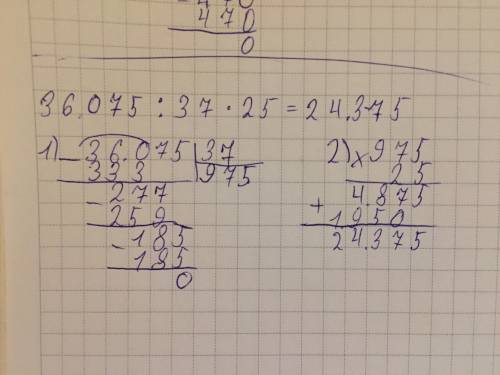 - 470
470
0
36.075 : 37 · 25 = 24.375
1) - 36.075 | 37
333 | 975
- 277
259
- 185
185
0
2) x 975
25
+ 4.875
1950
24.375